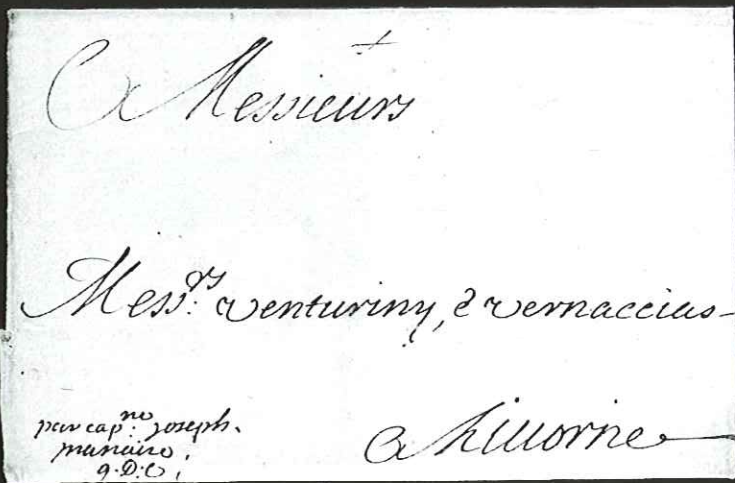 A Messieurs
Mess.rs Venturiny, & Vernaccias
par cap.ne Joseph
q.D.C.
A Livorne